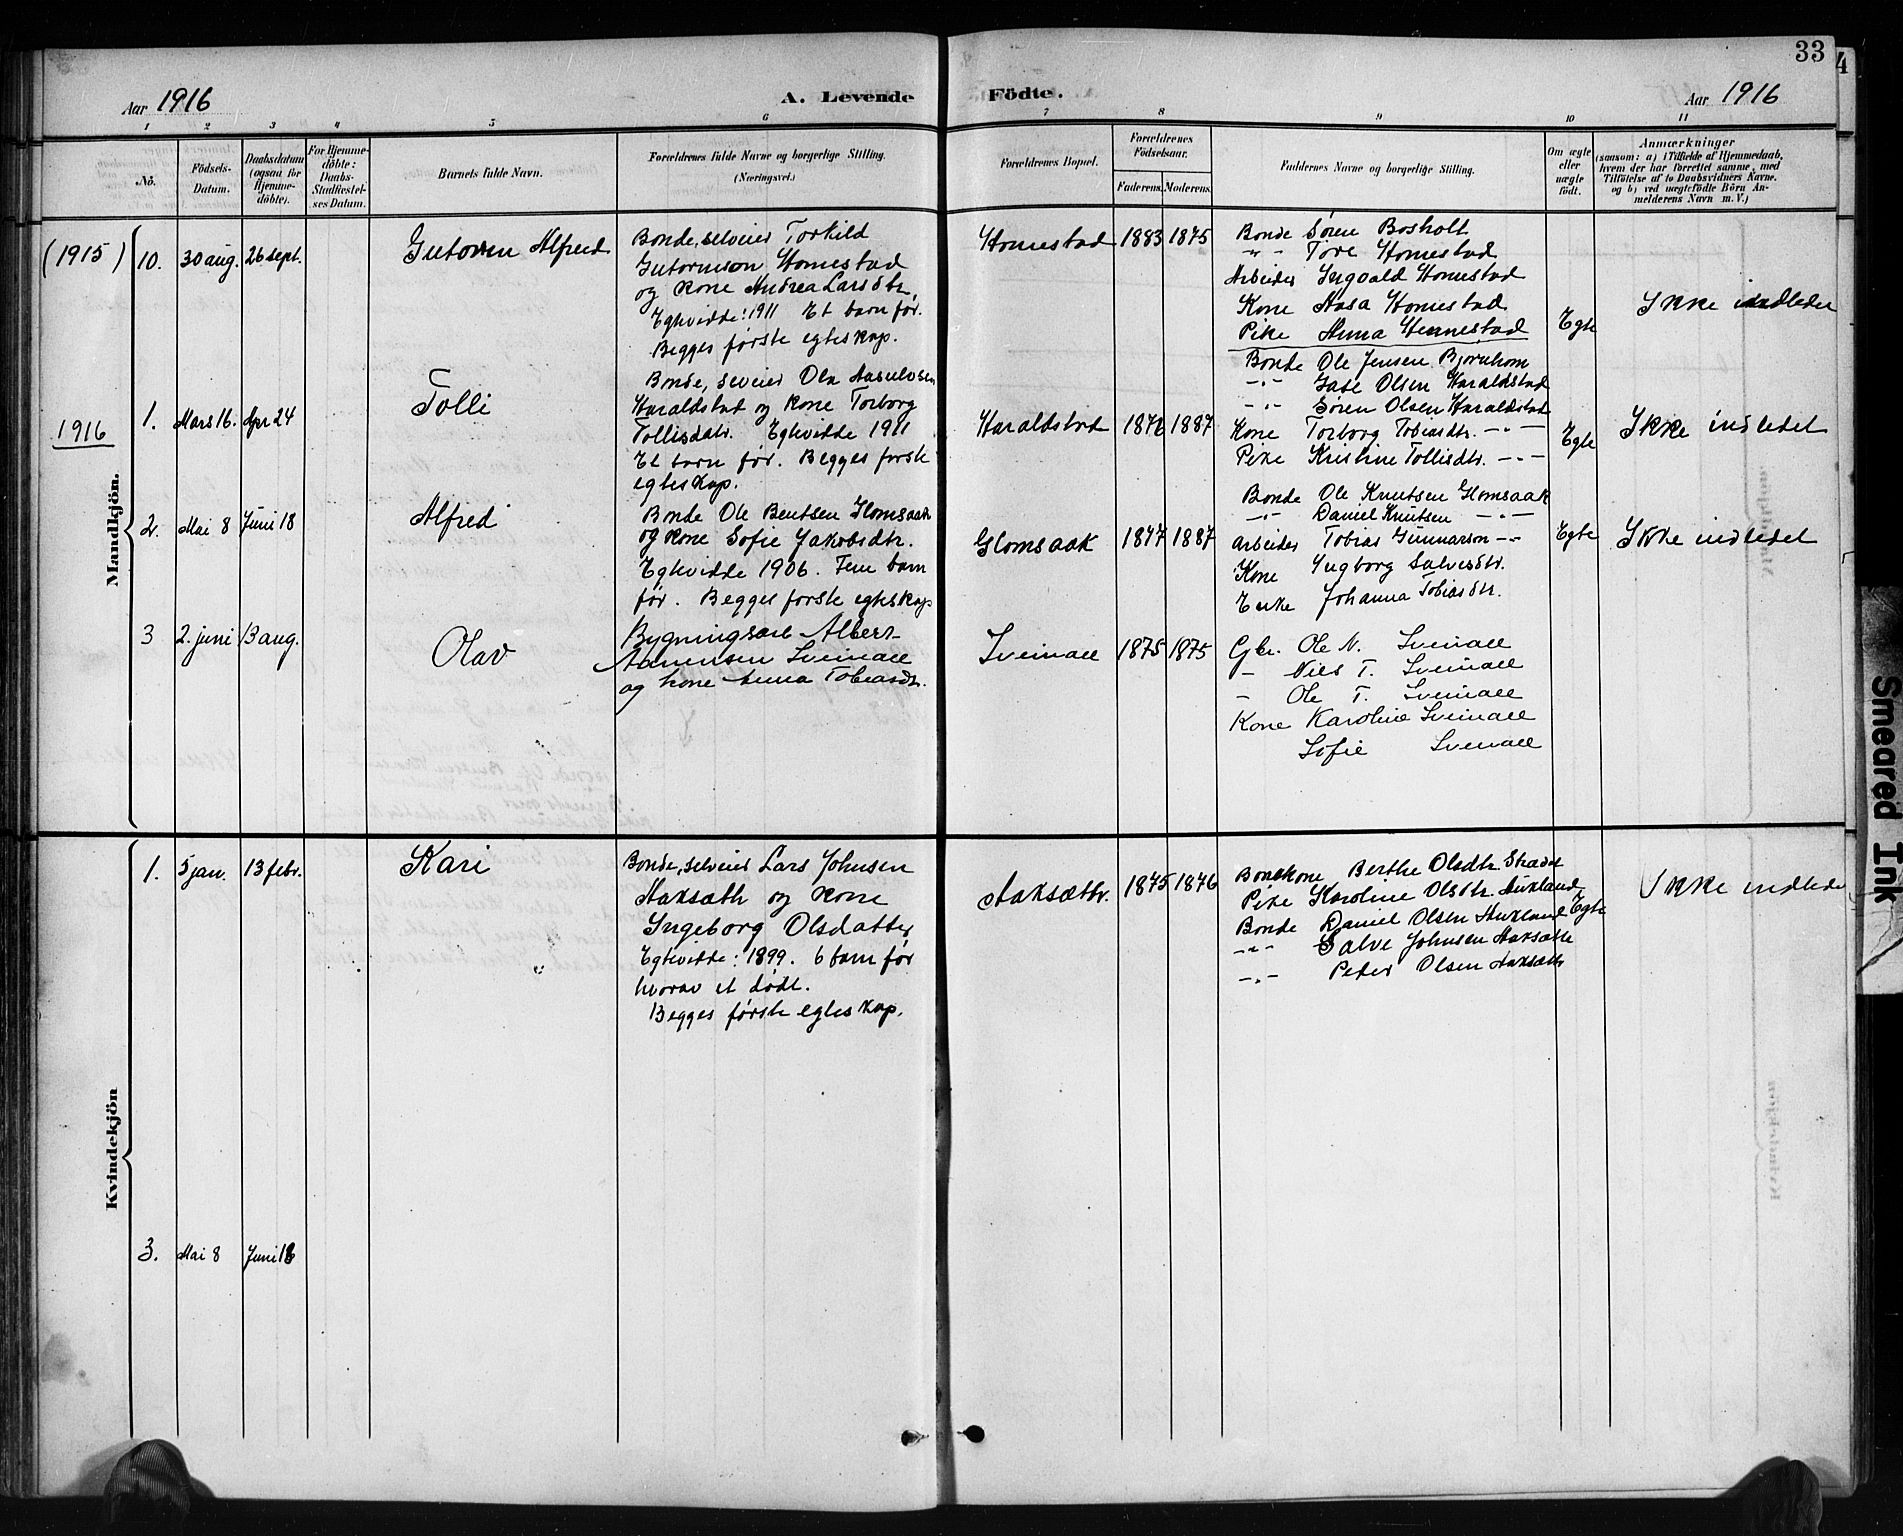 33
4
Aar 1916
A. Levende Födte.
Aar 1916
1 2 3 4 5 6 7 8 9 10 11
No.
Födsels-
Datum.
Daabsdatum
(ogsaa for
Hjemme-
döbte).
For Hjemme-
döbte:
Daabs-
Stadfæstel-
ses Datum.
Barnets fulde Navn.
Forældrenes fulde Navne og borgerlige Stilling.
(Næringsvei.)
Forældrenes Bopæl.
Forældrenes
Födselsaar.
Faderens. Moderens.
Faddernes Navne og borgerlige Stilling.
Om ægte
eller
uægte
födt.
Anmærkninger
(saasom: a) i Tilfælde af Hjemmedaab,
hvem der har forrettet samme, med
Tilföielse af to Daabsvidners Navne.
og b) ved uægtefödte Börn An-
melderens Navn m. V.)
Mandkjön.
(1915) 10. 30 aug. 26 sept.
Gutorm Alfred
Bonde, selveier Torkild
Gutormson Homestad
og kone Andrea Larsdtr,
Egtevidde: 1911 Et barn før.
Begges første egteskap.
Homestad 1883 1875
Bonde Sören Bosholt
-"- Tore Homestad
Arbeider Ingvald Homestad
Kone Aasa Homestad
Pike Anna Hennestad
Egte
Ikke indledet
1916
1. Mars 16. Apr 24
Tolli
Bonde, selveier Ola Aasulvsen
Haraldstad og kone Torborg
Tollisdatr. Egtevidde 1911
Et barn før. Begges første
egteskap.
Haraldstad 1872 1887
Bonde Ole Jensen Bjornhom
-"- Olsen Haraldstad
-"- Søren Olsen Haraldstad
Kone Torborg Tobiasdtr. -"-
Pike Kristine Tollisdtr. -"-
Egte
Ikke indledet
2. Mai 8 Juni 18
Alfred
Bonde Ole Bentsen Glomsaak
og kone Sofie Jakobsdtr.
Egtevidde 1906. Fem barn
før. Begges første egteskap
Glomsaak 1877 1887
Bonde Ole Knutsen Glomsaak
-"- Daniel Knutsen -"-
arbeider Tobias Gunnarson -"-
Kone Ingborg Salvesdtr.
Enke Johanna Tobiasdtr.
Egte
Ikke indledet
3 2. juni 13 aug.
Olav
Bygningsarb. Albert
Aanensen Sveinall
og kone Anna Tobiasdr.
Sveinall 1875 1875
Gbr. Ole N. Sveinall
- Niels T. Sveinall
- Ole T. Sveinall
Kone Karoline Sveinall
Sofie Sveinall
Kvindekjön
1. 5 jan. 13 febr.
Kari
Bonde, selveier Lars Johnsen
Aaksæth og kone
Ingeborg Olsdatter
Egtevidde: 1899. 6 barn før
hvorav et dødt.
Begges første egteskap.
Aaksætr. 1875 1876
Bondekone Berthe Olsdtr.
Pike Karoline Olsdtr. Aukland
Bonde Daniel Olsen Aukland
-"- Salve Johnsen Aaksæth
-"- Peder Olsen Aaksæth
Egte
Ikke indledet
3. Mai 8 Juni 18
Smeared Ink